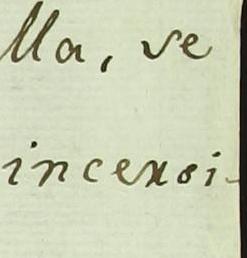 lla, se
incensi-